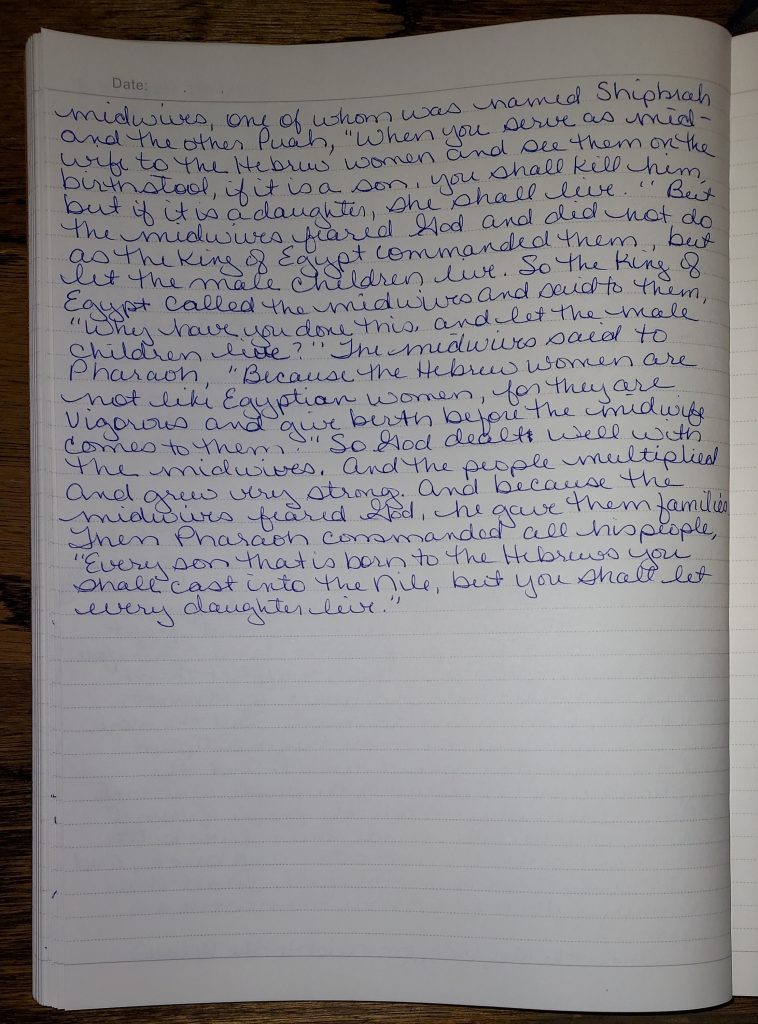 Date:
midwives, one of whom was named Shiphrah
and the other Puah, "When you serve as mid-
wife to the Hebrew women and see them on the
birthstool, if it is a son, you shall kill him,
but if it is a daughter, she shall live." But
the midwives feared God and did not do
as the King of Egypt commanded them, but
let the male children live. So the King of
Egypt called the midwives and said to them,
"Why have you done this, and let the male
children live?" The midwives said to
Pharaoh, "Because the Hebrew women are
not like Egyptian women, for they are
vigorous and give birth before the midwife
comes to them." So God dealt well with
the midwives. And the people multiplied
and grew very strong. And because the
midwives feared God, he gave them families
Then Pharaoh commanded all his people,
"Every son that is born to the Hebrews you
shall cast into the Nile, but you shall let
every daughter live."